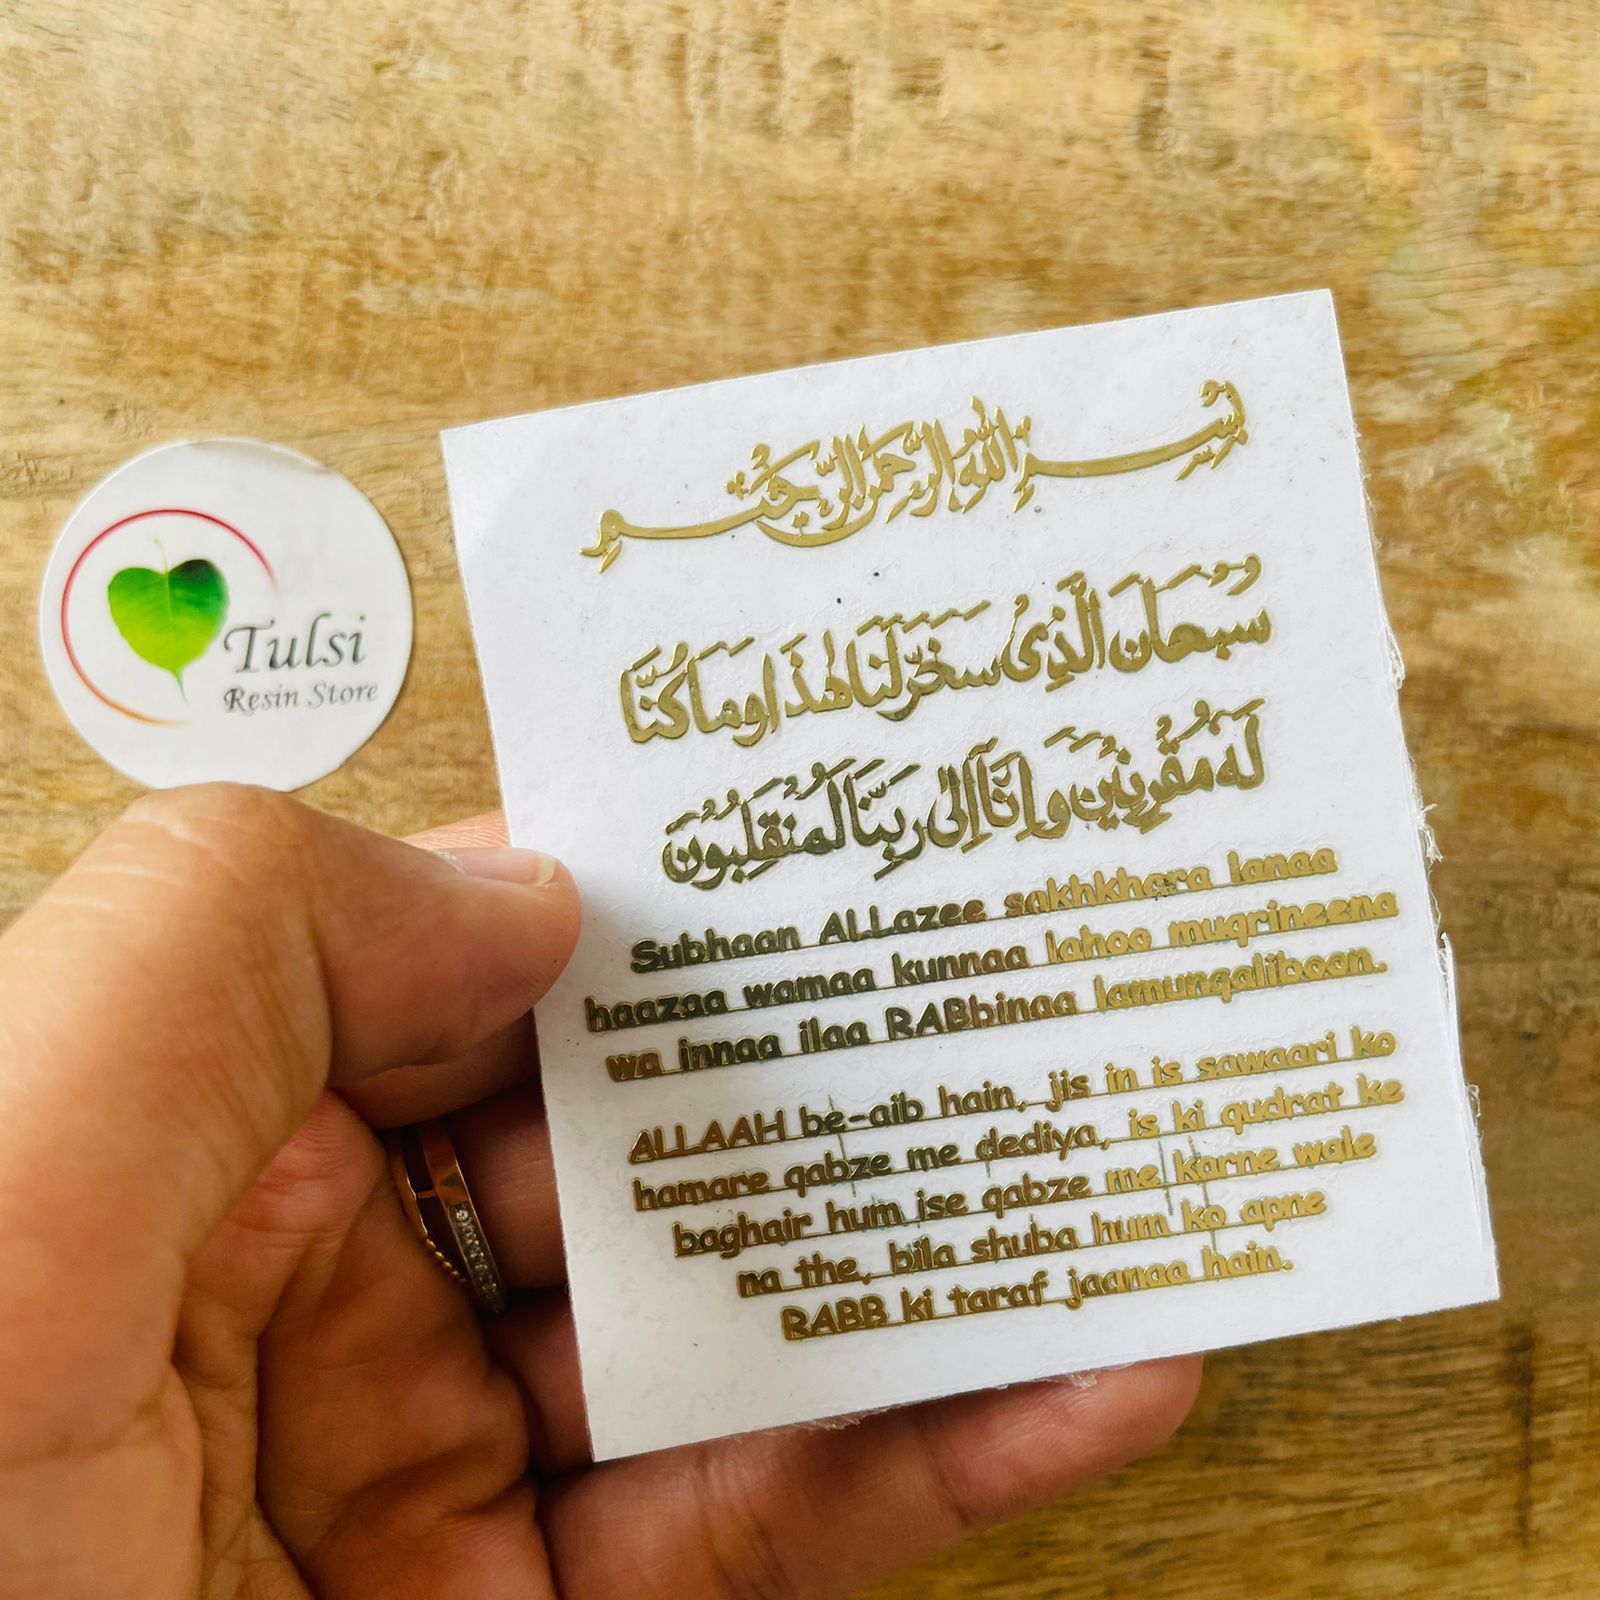 Tulsi
Resin Store
بسم الله الرحمن الرحيم
سُبْحَانَ الَّذِىْ سَخَّرَ لَنَا هٰذَا وَمَا كُنَّا
لَهٗ مُقْرِنِيْنَ وَاِنَّآ اِلٰى رَبِّنَا لَمُنْقَلِبُوْنَ
Subhaan ALLazee sakhkhara lanaa
haazaa wamaa kunnaa lahoo muqrineena
wa innaa ilaa RABbinaa lamunqaliboon.
ALLAAH be-aib hain, jis in is sawaari ko
hamare qabze me dediya, is ki qudrat ke
baghair hum ise qabze me karne wale
na the, bila shuba hum ko apne
RABB ki taraf jaanaa hain.